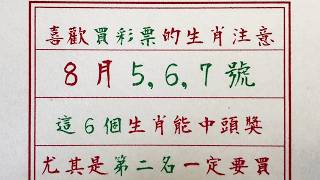 喜歡買彩票的生肖注意
8月5,6,7號
這6個生肖能中頭獎
尤其是第二名一定要買